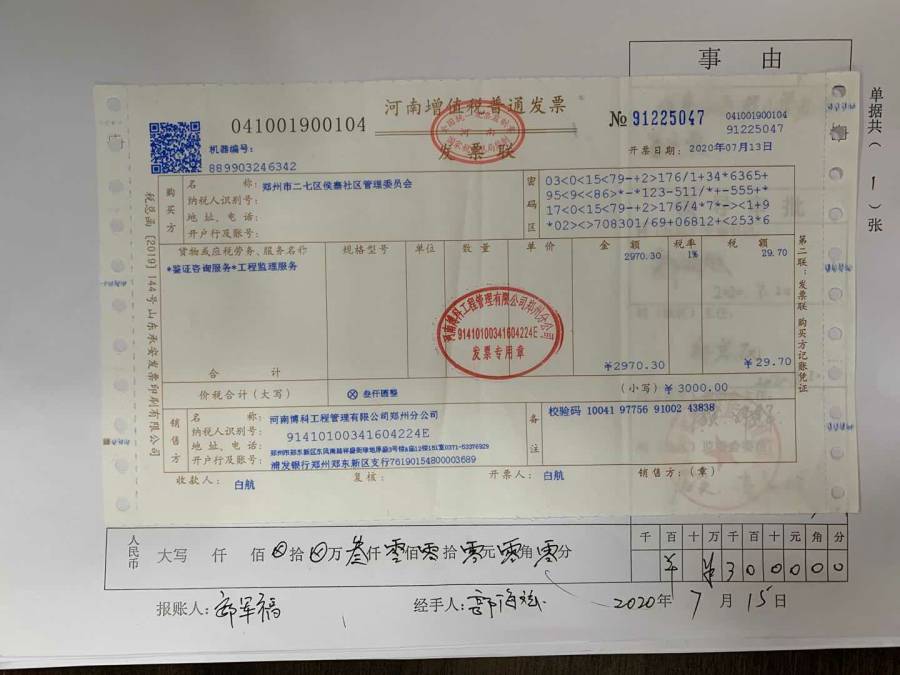 事 由
单据共(1)张
河南增值税普通发票
发票联
041001900104
№ 91225047
041001900104
91225047
机器编号:
889903246342
开票日期: 2020年07月13日
税总函〔2019〕144号山东承安发票印刷有限公司
购买方
名 称: 郑州市二七区侯寨社区管理委员会
纳税人识别号:
地 址、电 话:
开户行及账号:
密码区
03<0<15<79-+2>176/1+34*6365+
95<9<<86>*-*123-511/*+-555+*
17<0<15<79-+2>176/4*7*-><1+9
*02><>708301/69+06812+<253*6
货物或应税劳务、服务名称 规格型号 单位 数 量 单 价 金 额 税率 税 额
*鉴证咨询服务*工程监理服务 2970.30 1% 29.70
河南博科工程管理有限公司郑州分公司
91410100341604224E
发票专用章
合 计 ¥2970.30 ¥29.70
价税合计(大写) ⊗ 叁仟圆整 (小写) ¥3000.00
第二联:发票联 购买方记账凭证
销售方
名 称: 河南博科工程管理有限公司郑州分公司
纳税人识别号: 91410100341604224E
地 址、电 话: 郑州市郑东新区东风南路祥盛街绿地原盛3号楼A座12楼151室0371-53376929
开户行及账号: 浦发银行郑州郑东新区支行76190154800003689
备注
校验码 10041 97756 91002 43838
收款人: 白航 复核: 开票人: 白航 销售方:(章)
人民币 大写 仟 佰 拾 万叁仟零佰零拾零元零角零分
千 百 十 万 千 百 十 元 角 分
¥ 3 0 0 0 0 0
报账人: 经手人: 2020年 7 月 15 日